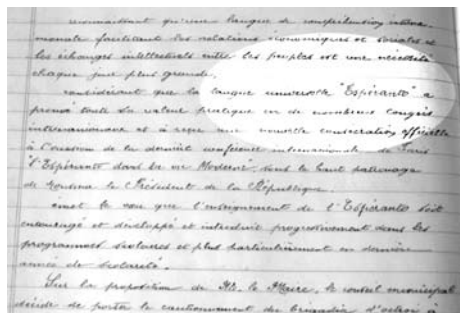 reconnaissant qu'une langue de compréhension interna-
tionale facilitant les relations économiques et sociales et
les échanges intellectuels entre les peuples est une nécessité
chaque jour plus grande,
considérant que la langue universelle "Espéranto" a
prouvé toute sa valeur pratique en de nombreux Congrès
internationaux et a reçu une nouvelle consécration officielle
à l'occasion de la dernière conférence internationale de Paris
"l'Espéranto dans la vie Moderne" sous le haut patronage
de Monsieur le Président de la République.
émet le vœu que l'enseignement de l'Espéranto soit
encouragé et développé et introduit progressivement dans les
programmes scolaires et plus particulièrement en dernière
année de scolarité.
Sur la proposition de Mr. le Maire, le conseil municipal
décide de porter le cautionnement du brigadier d'octroi à